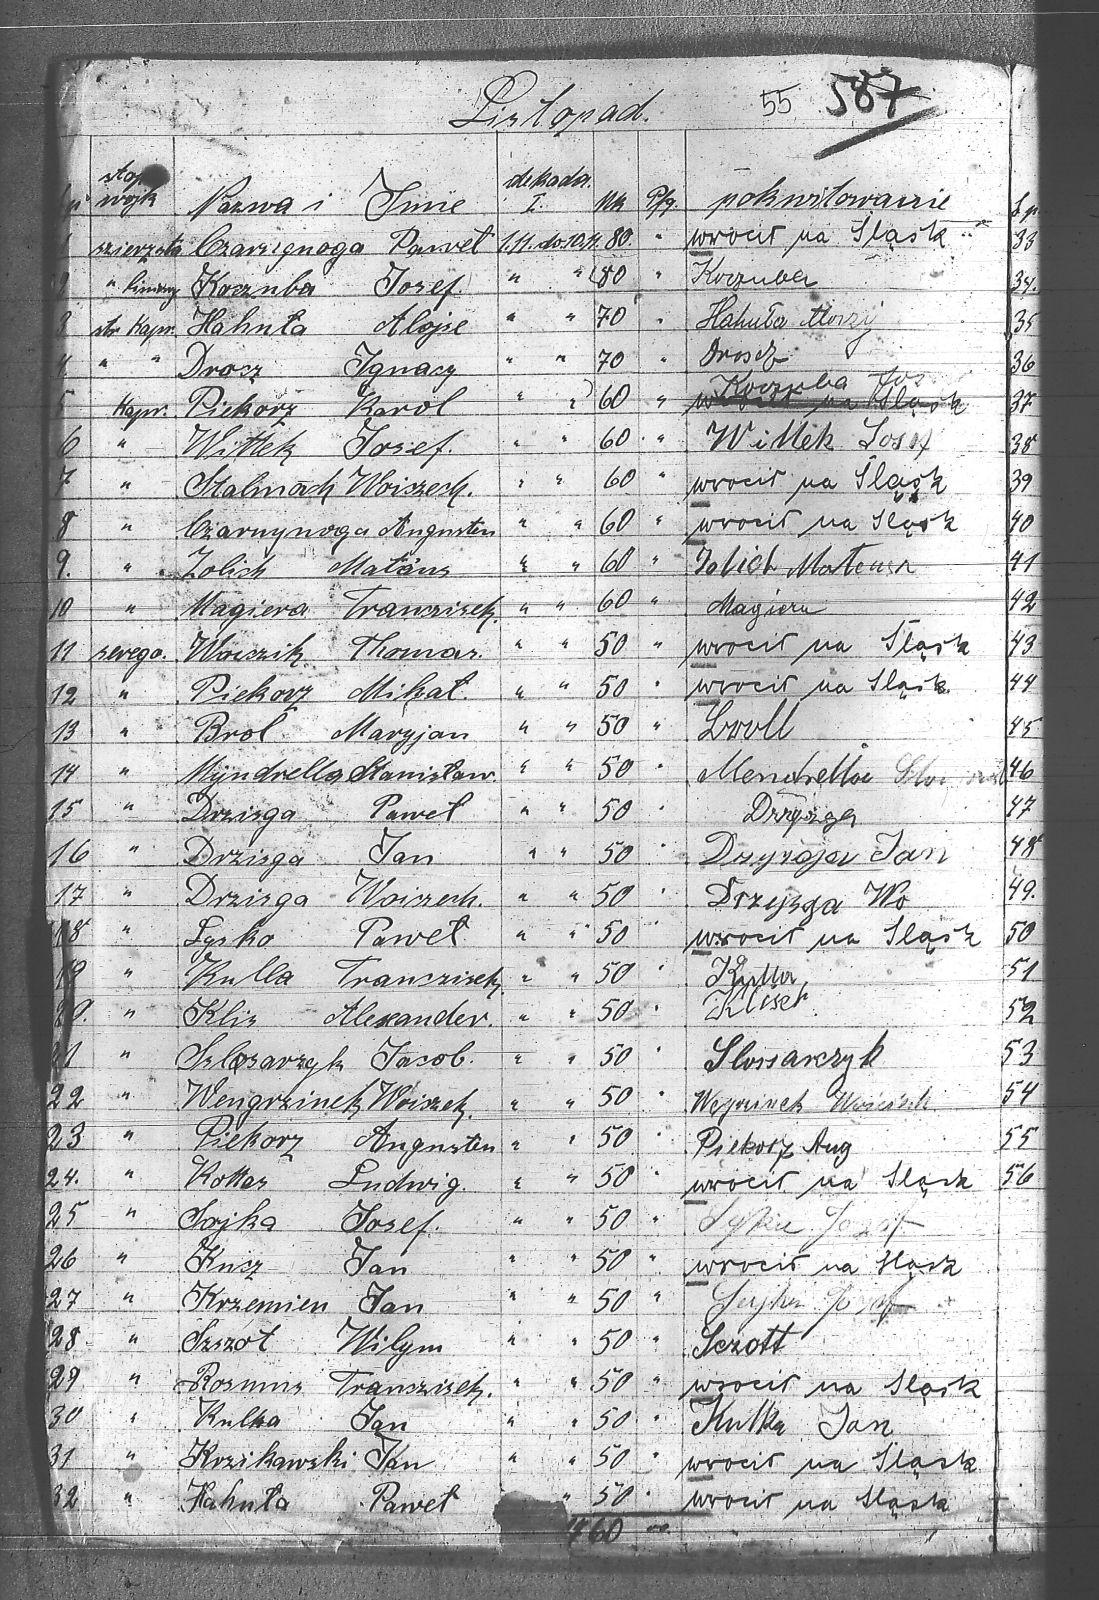 Listopad. 55 587
stop. wojk Nazwa i Imie dekada I. Mk Pfg. pokwitowanie Lp
szierznta Czarnynoga Paweł 1.11. do 10.11. 80. " wrocił na Śląsk " 33
" Koczuba Josef " " 80 " Koczuba 34.
3 str Kapr. Hahuła Alojse " " 70 " Hahuła Alorzy 35
4 " " Drosz Ignacy " " 70 " Drosch 36
5 Kapr. Piekorz Karol " " 60 " Koczuba Jos 37
6 " Wittek Josef. " " 60 " Wittek Josef 38
7 " Stalmach Woiszech. " " 60 " wrocił na Śląsk 39
8 " Czarnynoga Augusten " " 60 " wrocił na Śląsk 40
9. " Zolich Matäus " " 60 " Zolich Mateusz 41
10 " Magiera Franczisek. " " 60 " Magiera 42
11 szrego. Woiczik Thomas. " " 50 " wrocił na Śląsk 43
12 " Piekorz Michał. " " 50 " wrocił na Śląsk 44
13 " Brol Maryjan " " 50 " Broll 45
14 " Myndrella Stanisław. " " 50 " Mendrella 46
15 " Drzisga Paweł " " 50 " Drzyzga 47
16 " Drzisga Jan " " 50 " Dzyzga Jan 48
17 " Drzisga Woiszech. " " 50 " Drzyzga Wo 49.
18 " Lysko Paweł " " 50 " wrocił na Śląsk 50
19 " Kulla Franczisek, " " 50 " Kulla, 51
20. " Klis Alexander. " " 50 " 52
21 " Szlosarzyk Jacob. " " 50 " Slossarczyk 53
22 " Wengrzinek Woiszek. " " 50 " Węgrzinek Woiciech 54
23 " Piekorz Augusten " " 50 " Piekorz Aug 55
24. " Kottas Ludwig. " " 50 " wrocił na Śląsk 56
25 " Sojka Josef. " " 50 " Józef
26 " Kusz Jan " " 50 " wrocił na Śląsk
27 " Krzemien Jan " " 50 "
28 " Szszot Wilym " " 50 " Sczott
29 " Rosmus Franczisek. " " 50 " wrocił na Śląsk
30 " Kulka Jan " " 50 " Kulka Jan
31 " Krzikawski Jan " " 50 " wrocił na Śląsk
32 " Hahuła Paweł " 50 " wrocił na Śląsk
60